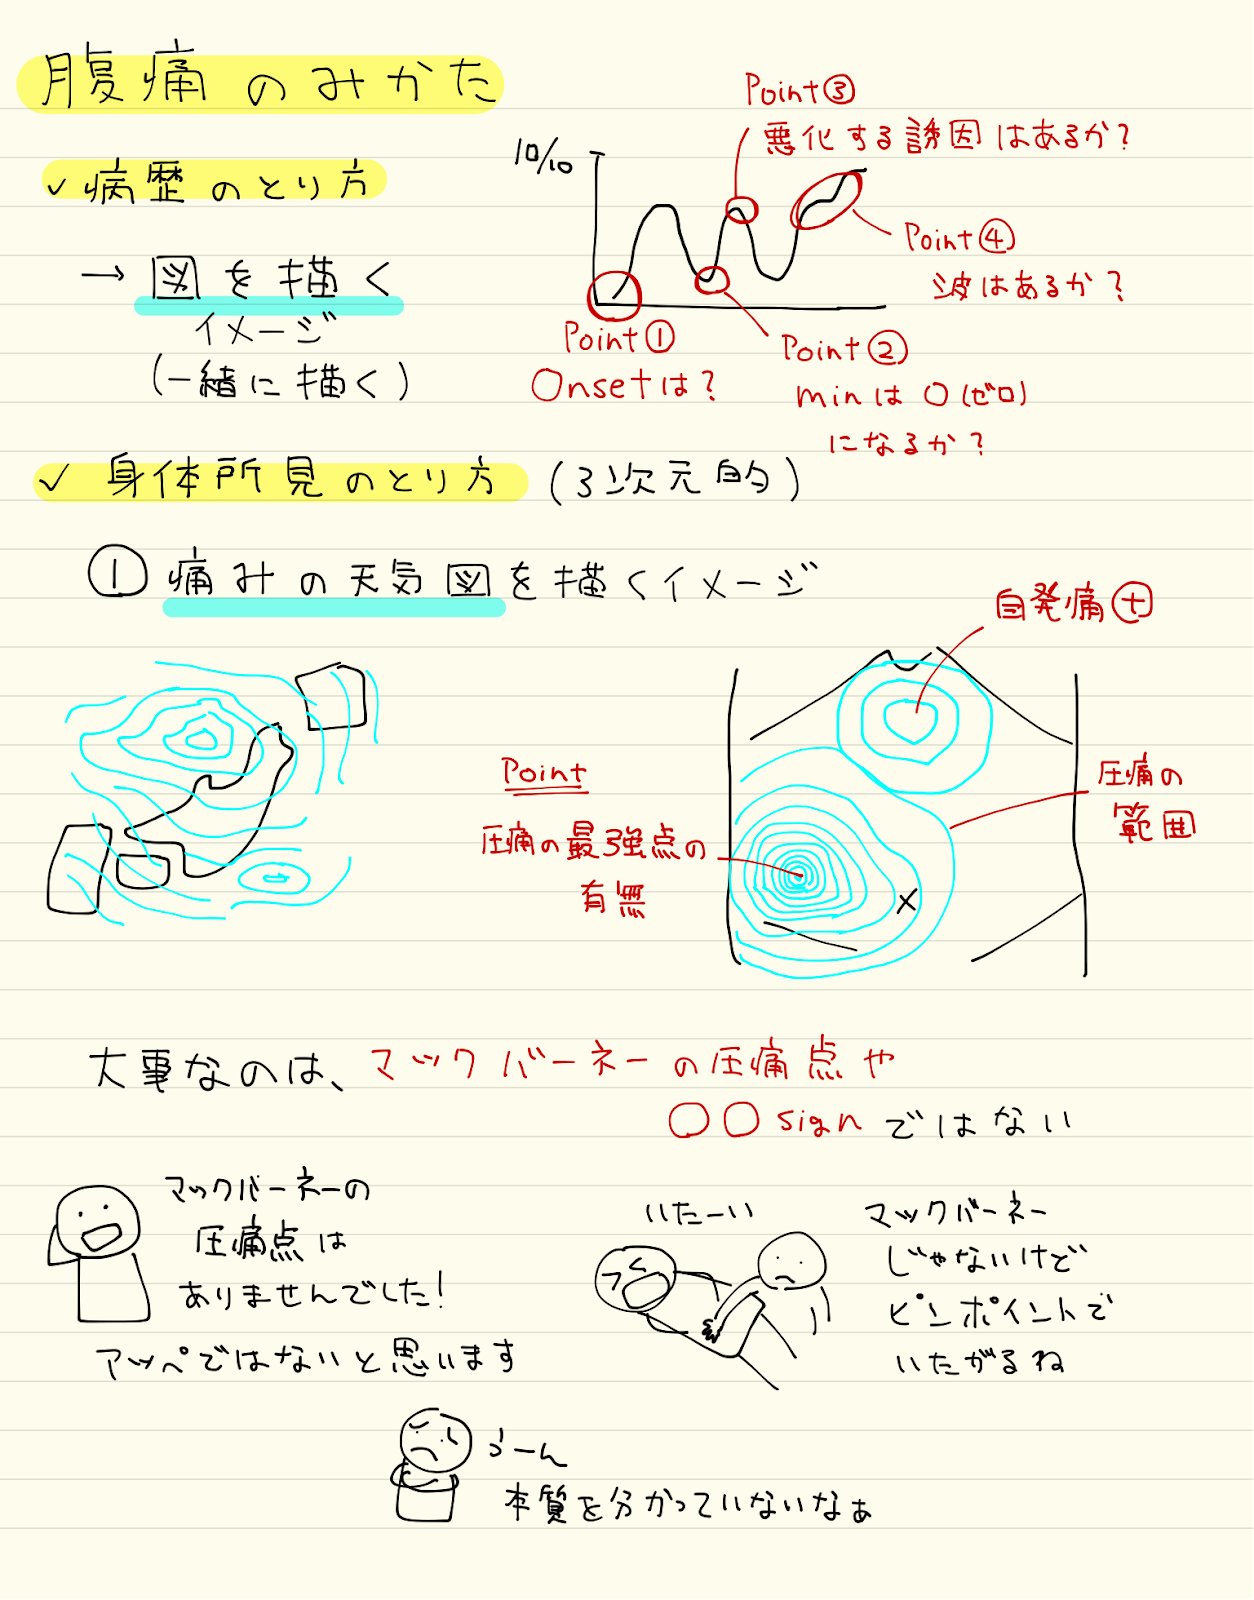 腹痛のみかた
✓病歴のとり方
→図を描く
イメージ
(一緒に描く)
10/10
Point③
悪化する誘因はあるか?
Point④
波はあるか?
Point①
Onsetは?
Point②
minは0(ゼロ)
になるか?
✓身体所見のとり方(3次元的)
①痛みの天気図を描くイメージ
自発痛⊕
Point
圧痛の最強点の
有無
圧痛の
範囲
×
大事なのは、マックバーネーの圧痛点や
○○signではない
マックバーネーの
圧痛点は
ありませんでした!
アッペではないと思います
いたーい
マックバーネー
じゃないけど
ピンポイントで
いたがるね
うーん
本質を分かっていないなぁ